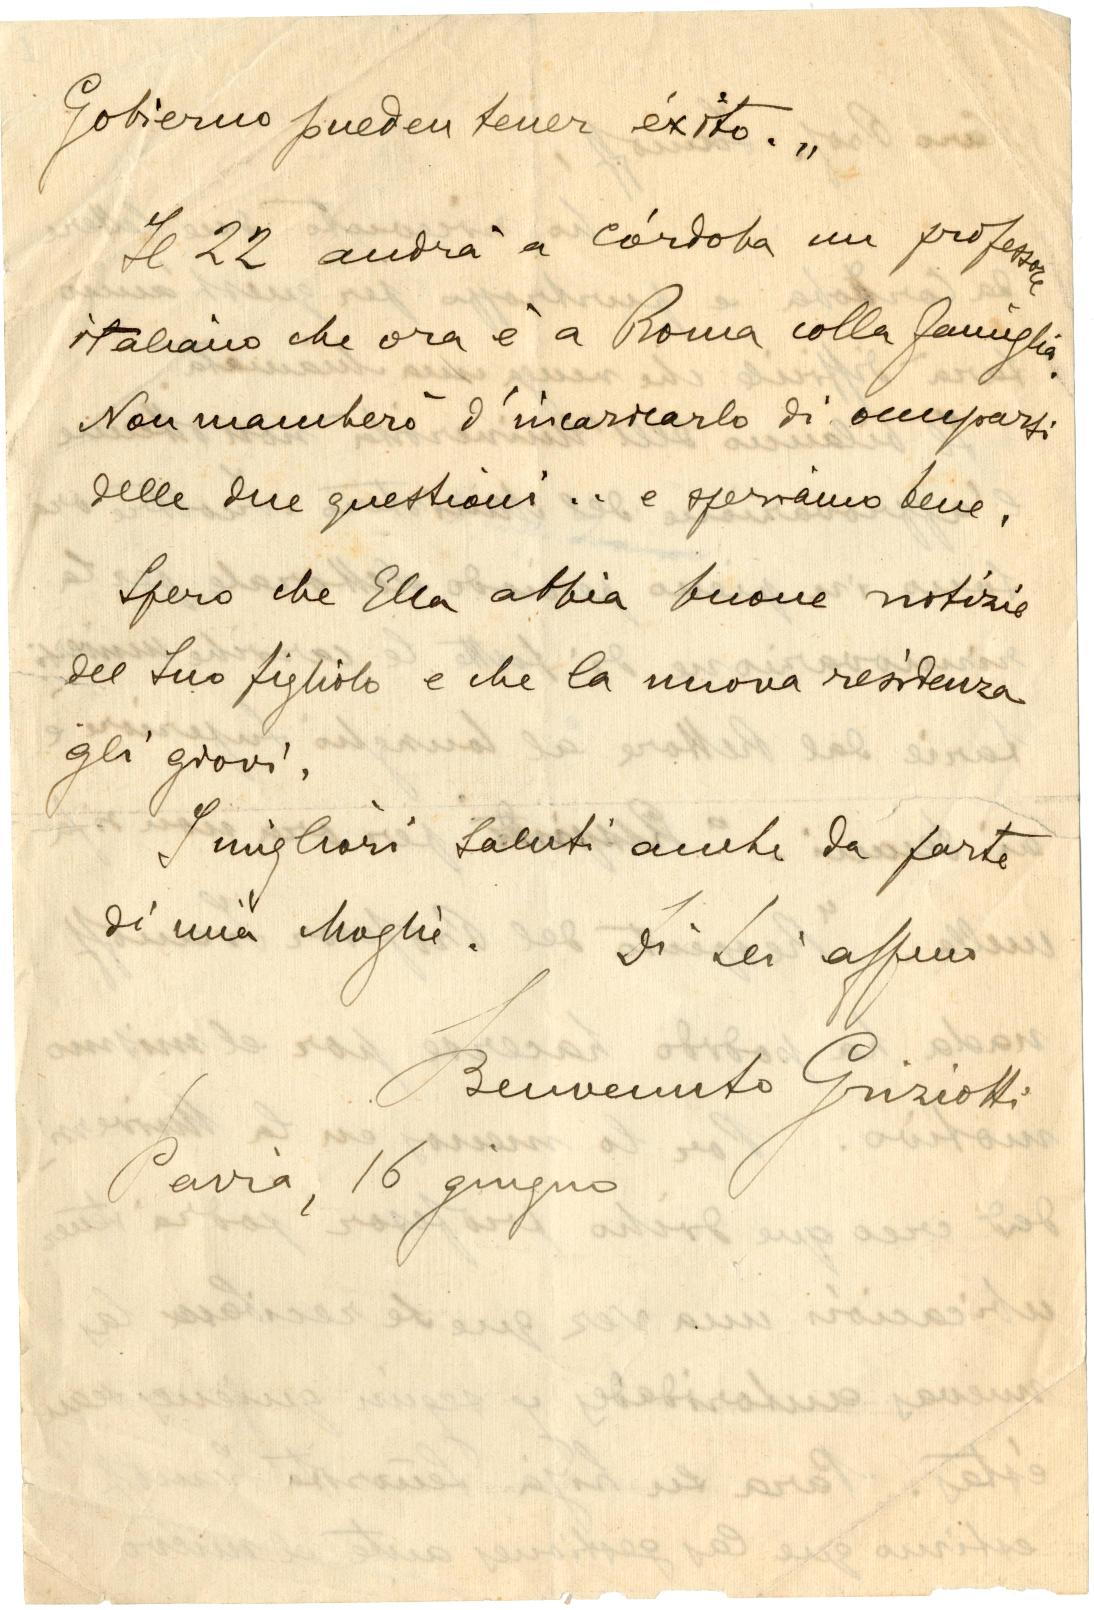 Gobierno pueden tener éxito. „
Il 22 andrà a Córdoba un professore
italiano che ora è a Roma colla famiglia.
Non mancherò d'incaricarlo di occuparsi
delle due questioni .. e speriamo bene.
Spero che Ella abbia buone notizie
del Suo figliolo e che la nuova residenza
gli giovi.
I migliori saluti anche da parte
di mia Moglie. Di Lei affmo
Benvenuto Griziotti
Pavia, 16 giugno